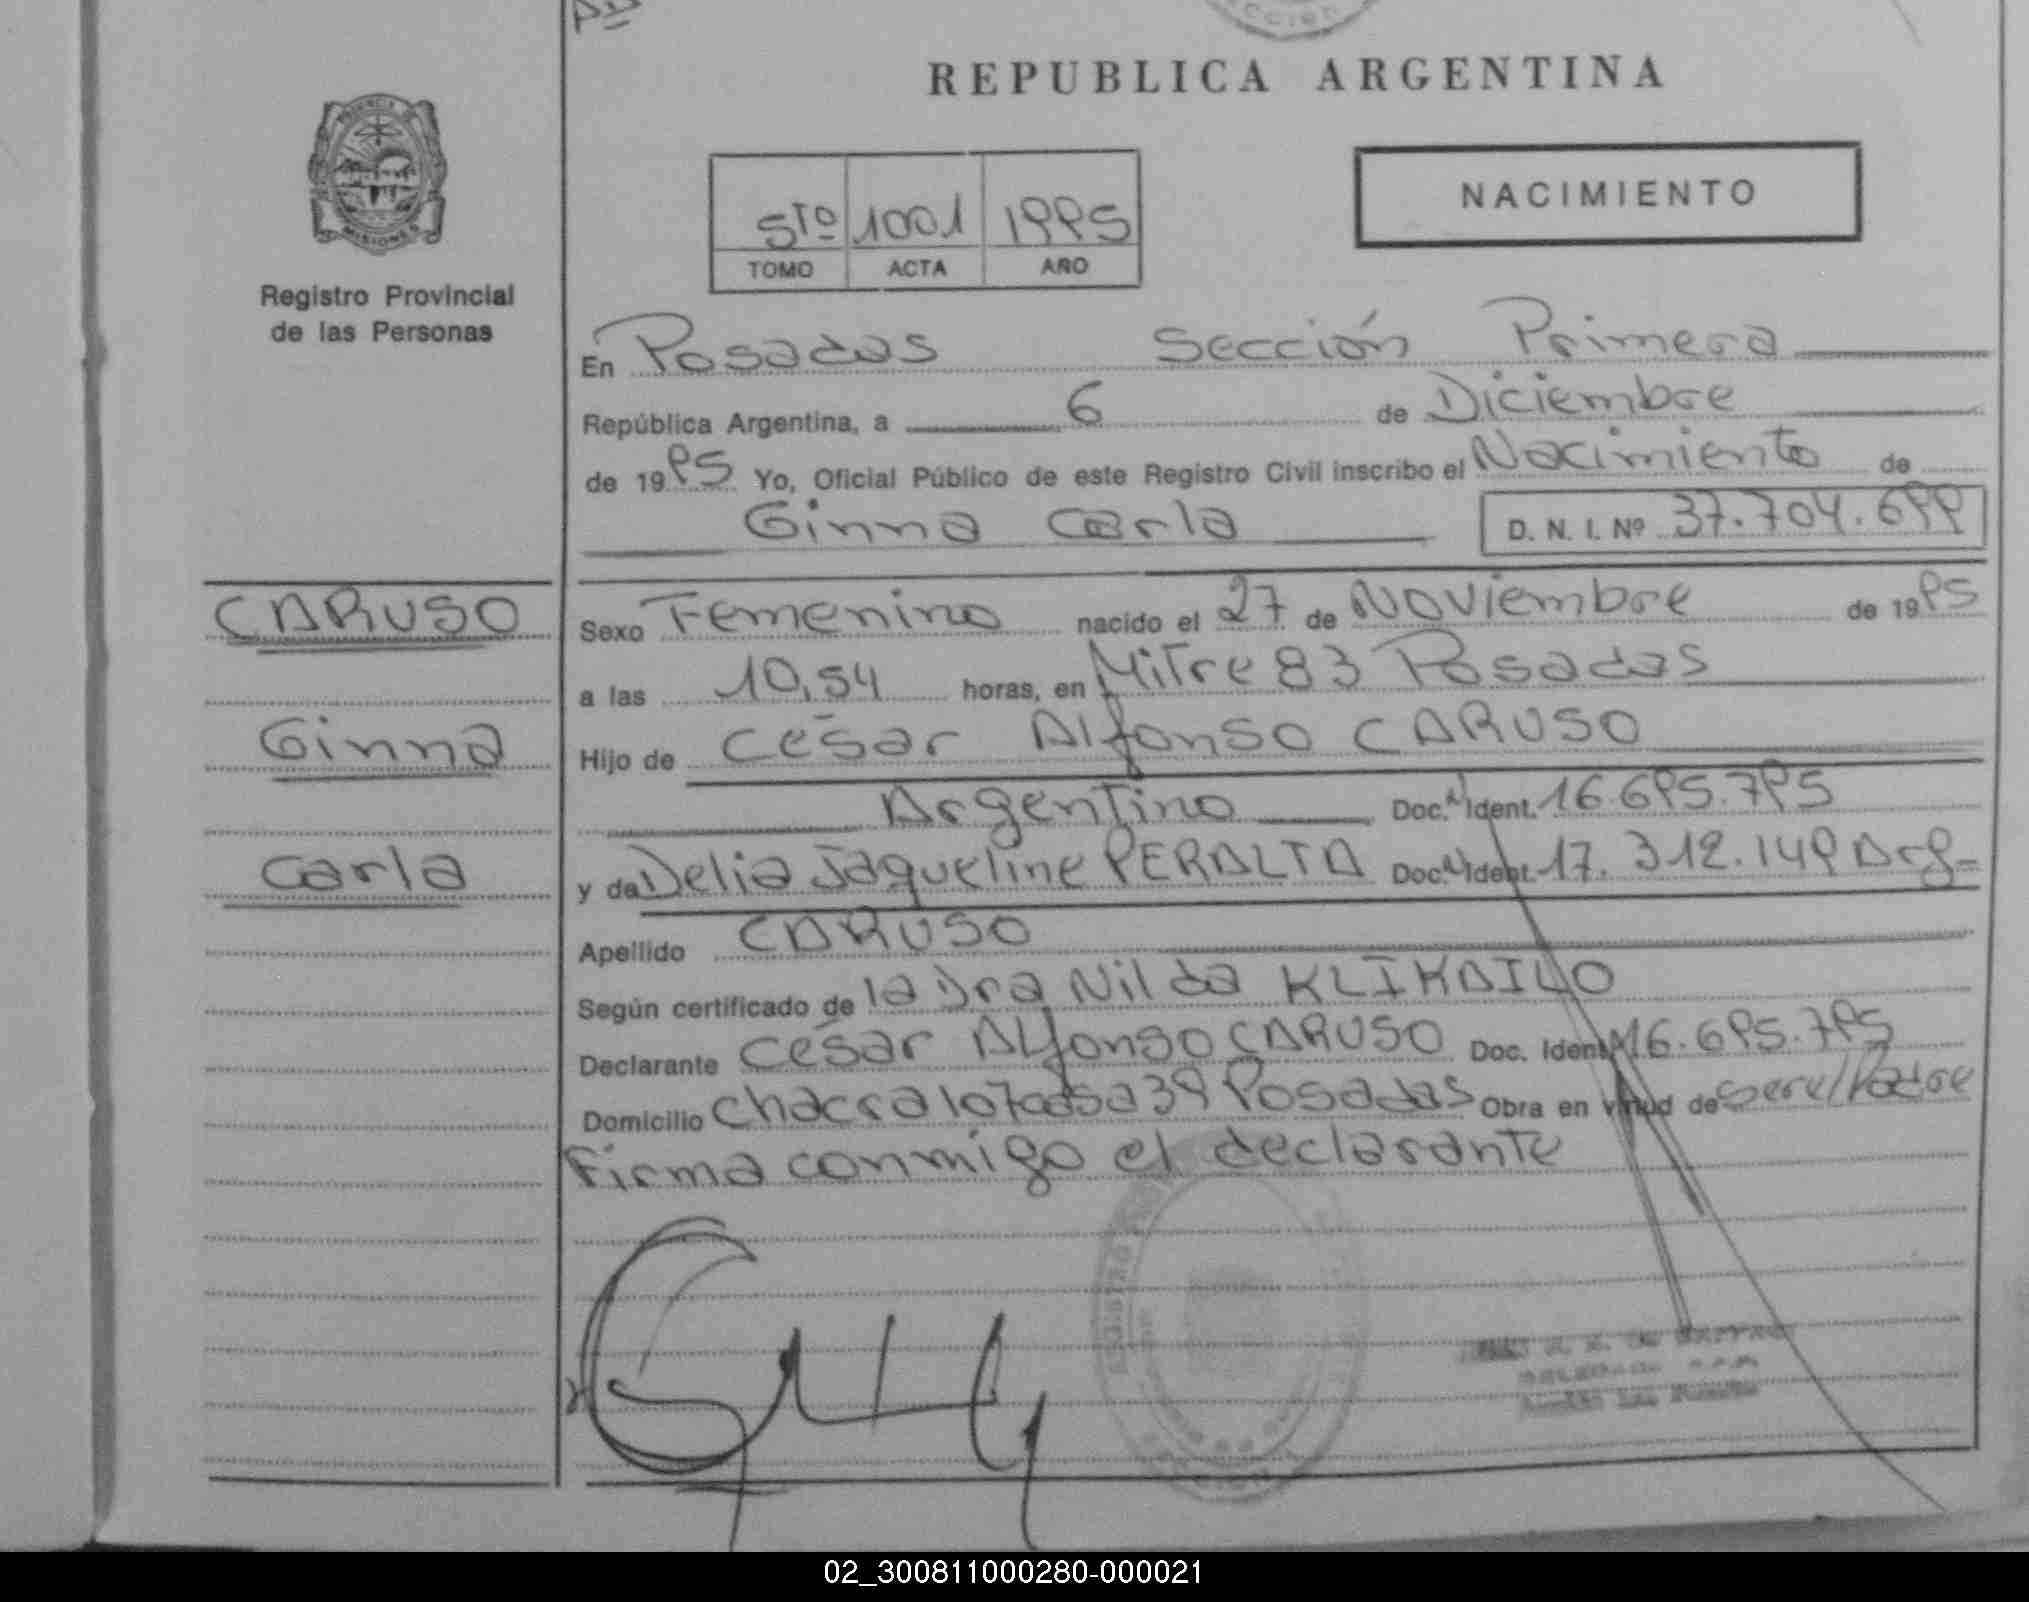 REPUBLICA ARGENTINA
MISIONES
Registro Provincial
de las Personas
5to 1001 1995
TOMO ACTA AÑO
NACIMIENTO
En Posadas Sección Primera
República Argentina, a 6 de Diciembre
de 1995 Yo, Oficial Público de este Registro Civil inscribo el Nacimiento de
Ginna Carla D. N. I. Nº 37.704.699
CARUSO
Ginna
Carla
Sexo Femenino nacido el 27 de Noviembre de 1995
a las 10,54 horas, en Mitre 83 Posadas
Hijo de César Alfonso CARUSO
Argentino Doc. Ident. 16.695.795
y de Delia Jaqueline PERALTA Doc. Ident. 17.312.149 Arg
Apellido CARUSO
Según certificado de la Dra Nilda
Declarante César Alfonso CARUSO Doc. Ident. 16.695.795
Domicilio chacra 107 casa 39 Posadas Obra en virtud de ser el Padre
Firma conmigo el declarante
02_300811000280-000021